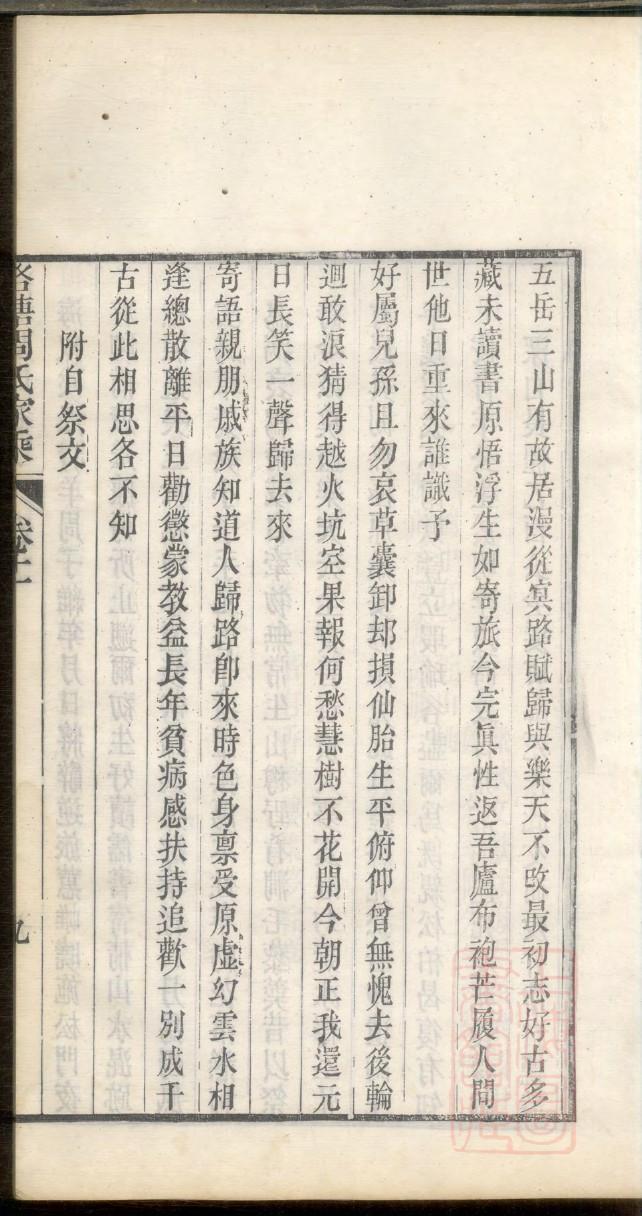 五岳三山有故居漫從寘路賦歸與樂天不改最初志好古多
藏未讀書原悟浮生如寄旅今完眞性返吾廬布袍芒履人間
世他日重來誰識予
好屬兒孫且勿哀草囊卸却損仙胎生平俯仰曾無愧去後輪
迴敢浪猜得越火坑空果報何愁慧樹不花開今朝正我還元
日長笑一聲歸去來
寄語親朋戚族知道人歸路卽來時色身禀受原虛幻雲水相
逢總散離平日勸懲蒙教益長年貧病感扶持追歡一別成千
古從此相思各不知
附自祭文
周氏家乘 卷十一 九